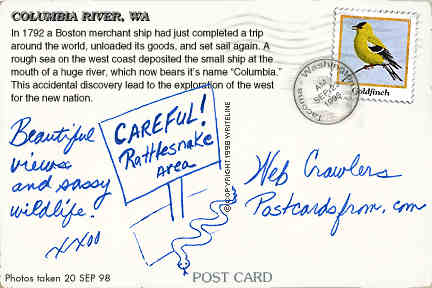 COLUMBIA RIVER, WA
In 1792 a Boston merchant ship had just completed a trip
around the world, unloaded its goods, and set sail again. A
rough sea on the west coast deposited the small ship at the
mouth of a huge river, which now bears it's name "Columbia."
This accidental discovery lead to the exploration of the west
for the new nation.
Goldfinch
Tacoma Washington
AM
SEP 24
1998
Beautiful
views
and sassy
wildlife.
xxoo
CAREFUL!
Rattlesnake
Area
©COPYRIGHT 1998 WRITELINE
Web Crawlers
Postcardsfrom.com
Photos taken 20 SEP 98
POST CARD